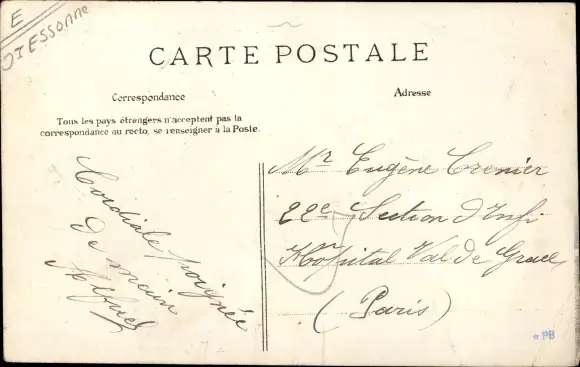 E
JT ESSONNE
CARTE POSTALE
Correspondance
Adresse
Tous les pays étrangers n'acceptent pas la
correspondance au recto, se renseigner à la Poste.
Cordiale poignée
de main
Mr Eugène Crenier
22e Section d'Infi
Hôpital Val de Grace
(Paris)
* PB